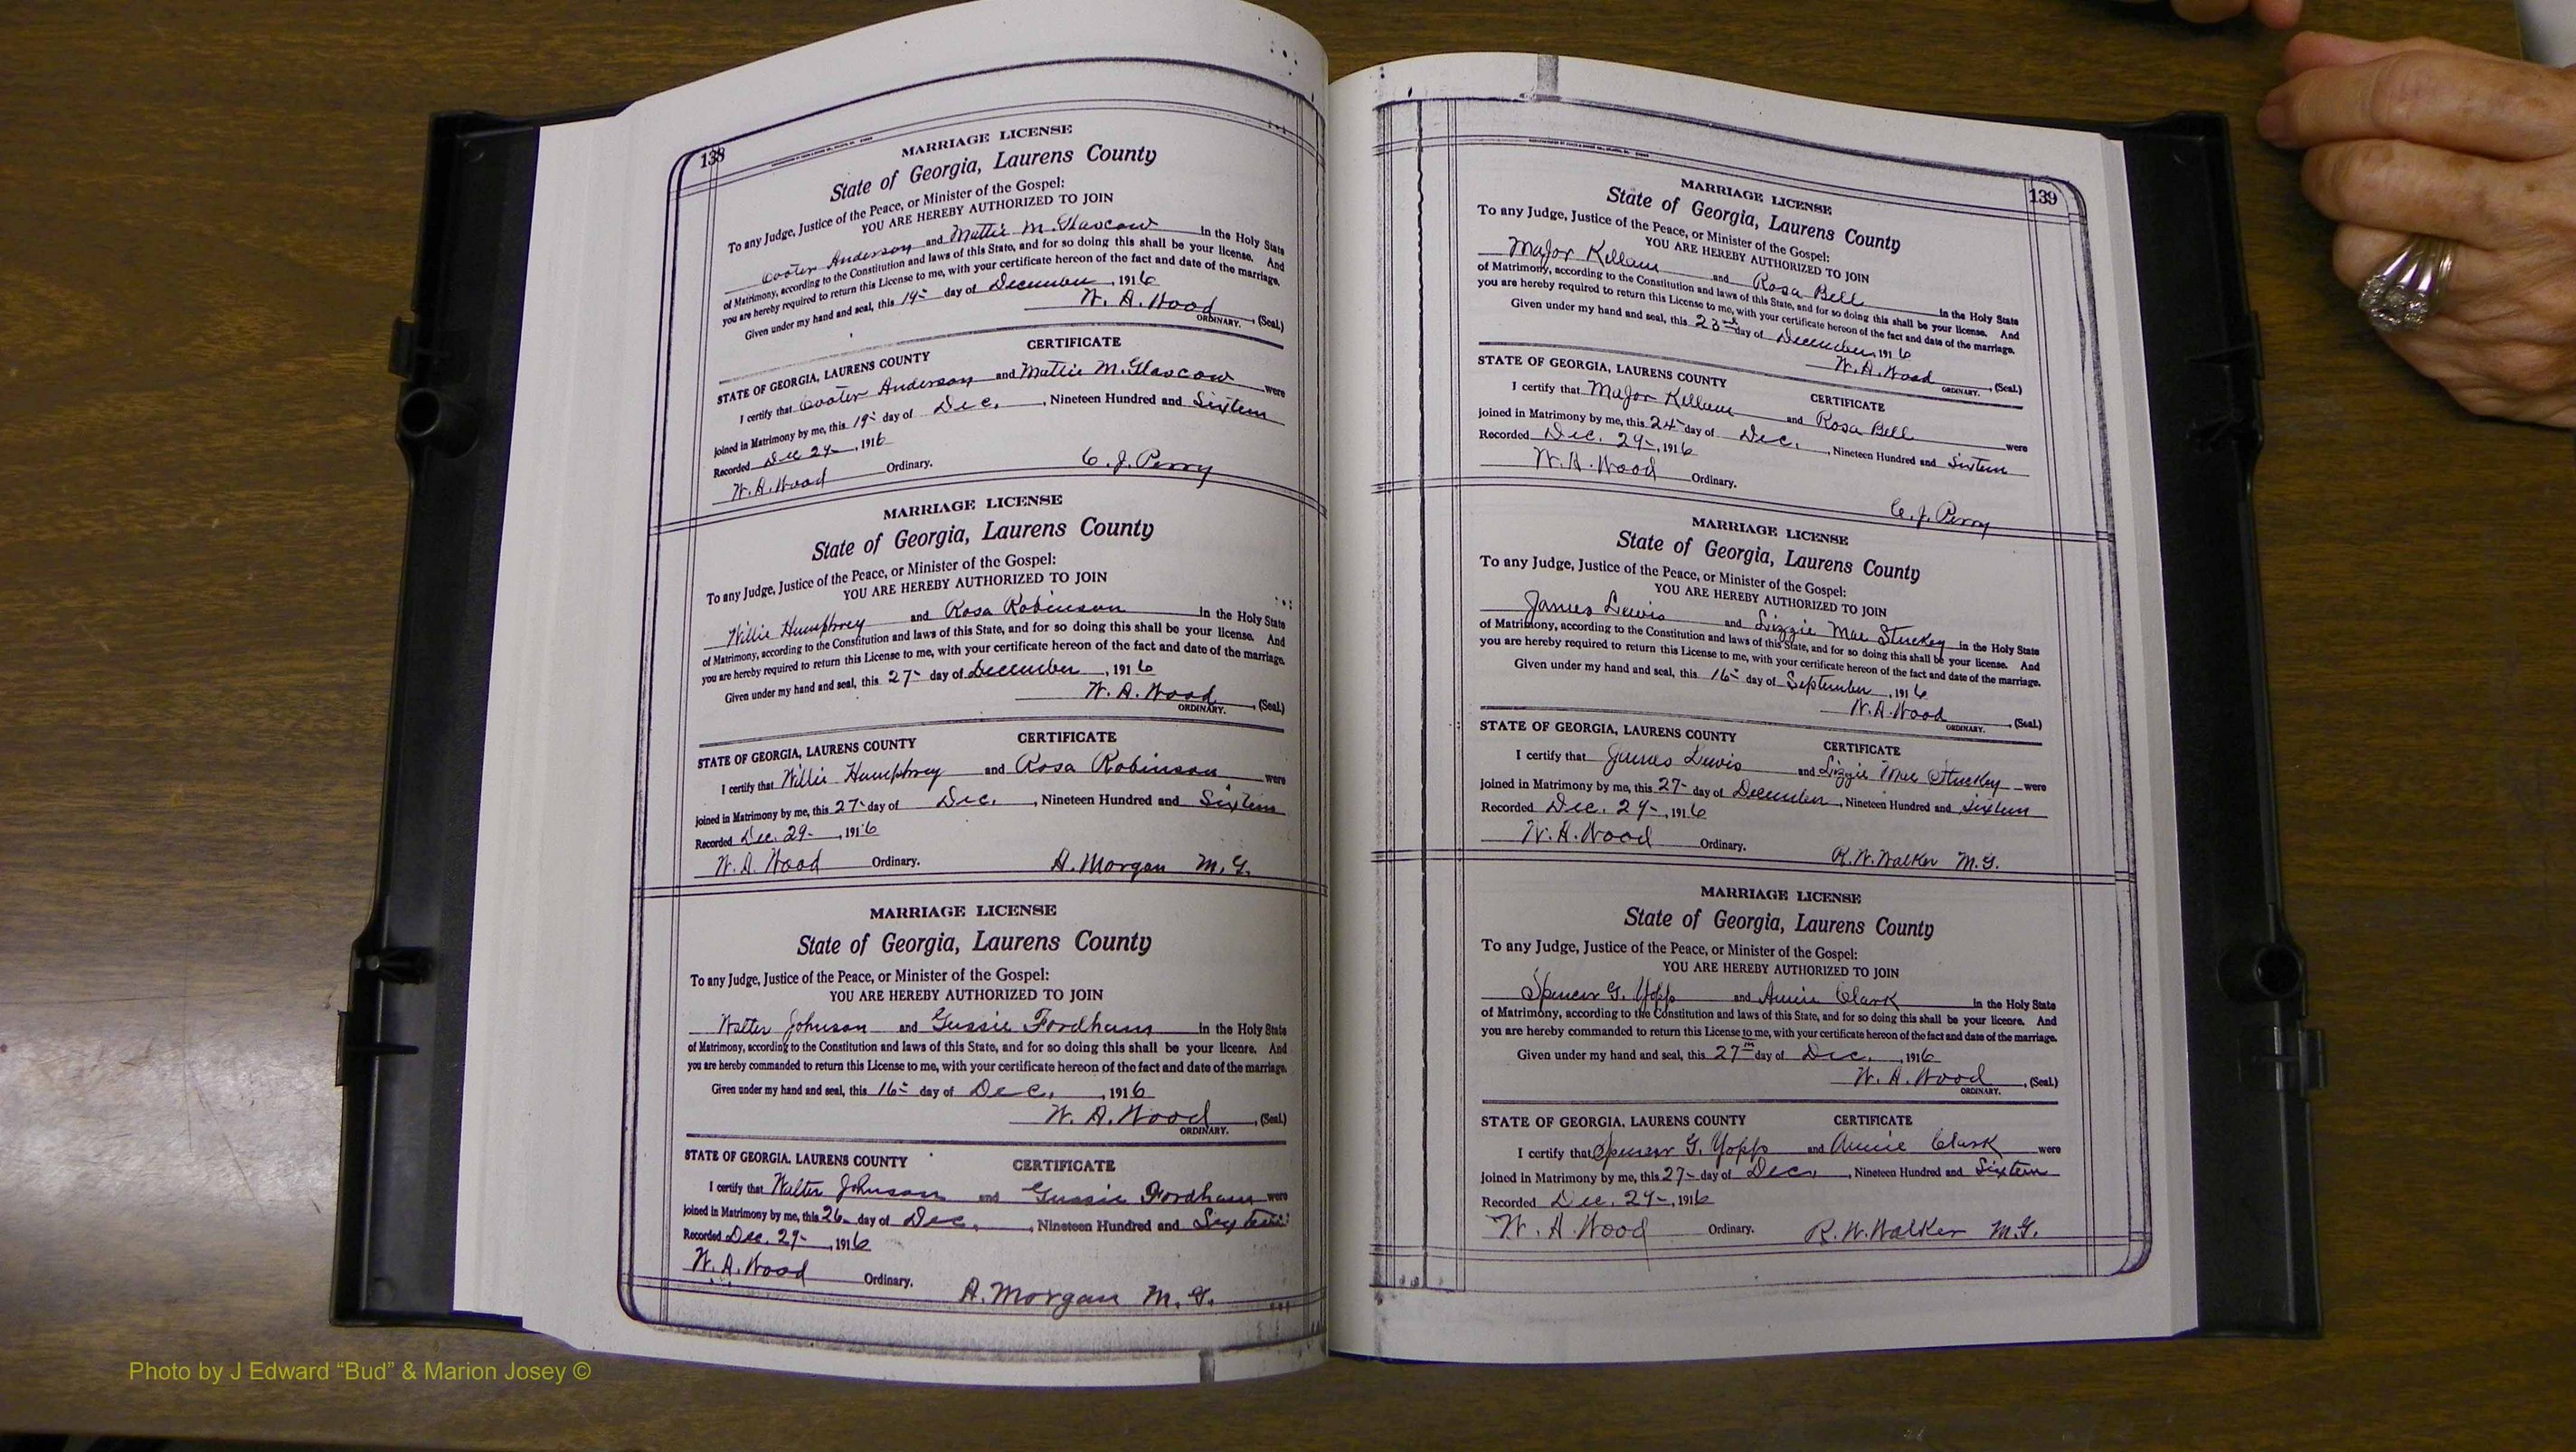 138
MARRIAGE LICENSE
State of Georgia, Laurens County
To any Judge, Justice of the Peace, or Minister of the Gospel:
YOU ARE HEREBY AUTHORIZED TO JOIN
Cooter Anderson and Mattie M. Glascow in the Holy State
of Matrimony, according to the Constitution and laws of this State, and for so doing this shall be your license. And
you are hereby required to return this License to me, with your certificate hereon of the fact and date of the marriage.
Given under my hand and seal, this day of December, 1916
W. A. Wood, (Seal.)
ORDINARY.
CERTIFICATE
STATE OF GEORGIA, LAURENS COUNTY
I certify that Cooter Anderson and Mattie M. Glascow were
joined in Matrimony by me, this 19- day of Dec., Nineteen Hundred and Sixteen
Recorded Dec 29-, 1916
W. A. Wood Ordinary.
C. J. Perry
MARRIAGE LICENSE
State of Georgia, Laurens County
To any Judge, Justice of the Peace, or Minister of the Gospel:
YOU ARE HEREBY AUTHORIZED TO JOIN
Willie Humphrey and Rosa Robinson in the Holy State
of Matrimony, according to the Constitution and laws of this State, and for so doing this shall be your license. And
you are hereby required to return this License to me, with your certificate hereon of the fact and date of the marriage.
Given under my hand and seal, this 27- day of December, 1916
W. A. Wood, (Seal.)
ORDINARY.
CERTIFICATE
STATE OF GEORGIA, LAURENS COUNTY
I certify that Willie Humphrey and Rosa Robinson were
joined in Matrimony by me, this 27- day of Dec., Nineteen Hundred and Sixteen
Recorded Dec. 29-, 1916
W. A. Wood Ordinary.
A. Morgan M. G.
MARRIAGE LICENSE
State of Georgia, Laurens County
To any Judge, Justice of the Peace, or Minister of the Gospel:
YOU ARE HEREBY AUTHORIZED TO JOIN
Walter Johnson and Gussie Fordham in the Holy State
of Matrimony, according to the Constitution and laws of this State, and for so doing this shall be your licenre. And
you are hereby commanded to return this License to me, with your certificate hereon of the fact and date of the marriage.
Given under my hand and seal, this 16- day of Dec., 1916
W. A. Wood, (Seal.)
ORDINARY.
STATE OF GEORGIA. LAURENS COUNTY CERTIFICATE
I certify that Walter Johnson and Gussie Fordham were
joined in Matrimony by me, this 26- day of Dec., Nineteen Hundred and Sixteen
Recorded Dec. 29-, 1916
W. A. Wood Ordinary.
A. Morgan M. G.
139
MARRIAGE LICENSE
State of Georgia, Laurens County
To any Judge, Justice of the Peace, or Minister of the Gospel:
YOU ARE HEREBY AUTHORIZED TO JOIN
Major Kellam and Rosa Bell in the Holy State
of Matrimony, according to the Constitution and laws of this State, and for so doing this shall be your license. And
you are hereby required to return this License to me, with your certificate hereon of the fact and date of the marriage.
Given under my hand and seal, this 23rd day of December, 1916
W. A. Wood, (Seal.)
ORDINARY.
STATE OF GEORGIA, LAURENS COUNTY CERTIFICATE
I certify that Major Kellam and Rosa Bell were
joined in Matrimony by me, this 24- day of Dec., Nineteen Hundred and Sixteen
Recorded Dec. 29-, 1916
W. A. Wood Ordinary.
C. J. Perry
MARRIAGE LICENSE
State of Georgia, Laurens County
To any Judge, Justice of the Peace, or Minister of the Gospel:
YOU ARE HEREBY AUTHORIZED TO JOIN
James Lewis and Lizzie Mae Stuckey in the Holy State
of Matrimony, according to the Constitution and laws of this State, and for so doing this shall be your license. And
you are hereby required to return this License to me, with your certificate hereon of the fact and date of the marriage.
Given under my hand and seal, this 16- day of September, 1916
W. A. Wood, (Seal.)
ORDINARY.
STATE OF GEORGIA, LAURENS COUNTY CERTIFICATE
I certify that James Lewis and Lizzie Mae Stuckey were
joined in Matrimony by me, this 27- day of December, Nineteen Hundred and Sixteen
Recorded Dec. 29-, 1916
W. A. Wood Ordinary.
R. W. Walker M. G.
MARRIAGE LICENSE
State of Georgia, Laurens County
To any Judge, Justice of the Peace, or Minister of the Gospel:
YOU ARE HEREBY AUTHORIZED TO JOIN
Spencer G. Yopp and Annie Clark in the Holy State
of Matrimony, according to the Constitution and laws of this State, and for so doing this shall be your licenre. And
you are hereby commanded to return this License to me, with your certificate hereon of the fact and date of the marriage.
Given under my hand and seal, this 27th day of Dec., 1916
W. A. Wood, (Seal.)
ORDINARY.
STATE OF GEORGIA, LAURENS COUNTY CERTIFICATE
I certify that Spencer G. Yopp and Annie Clark were
joined in Matrimony by me, this 27- day of Dec., Nineteen Hundred and Sixteen
Recorded Dec. 29-, 1916
W. A. Wood Ordinary. R. W. Walker M. G.
Photo by J Edward “Bud” & Marion Josey ©